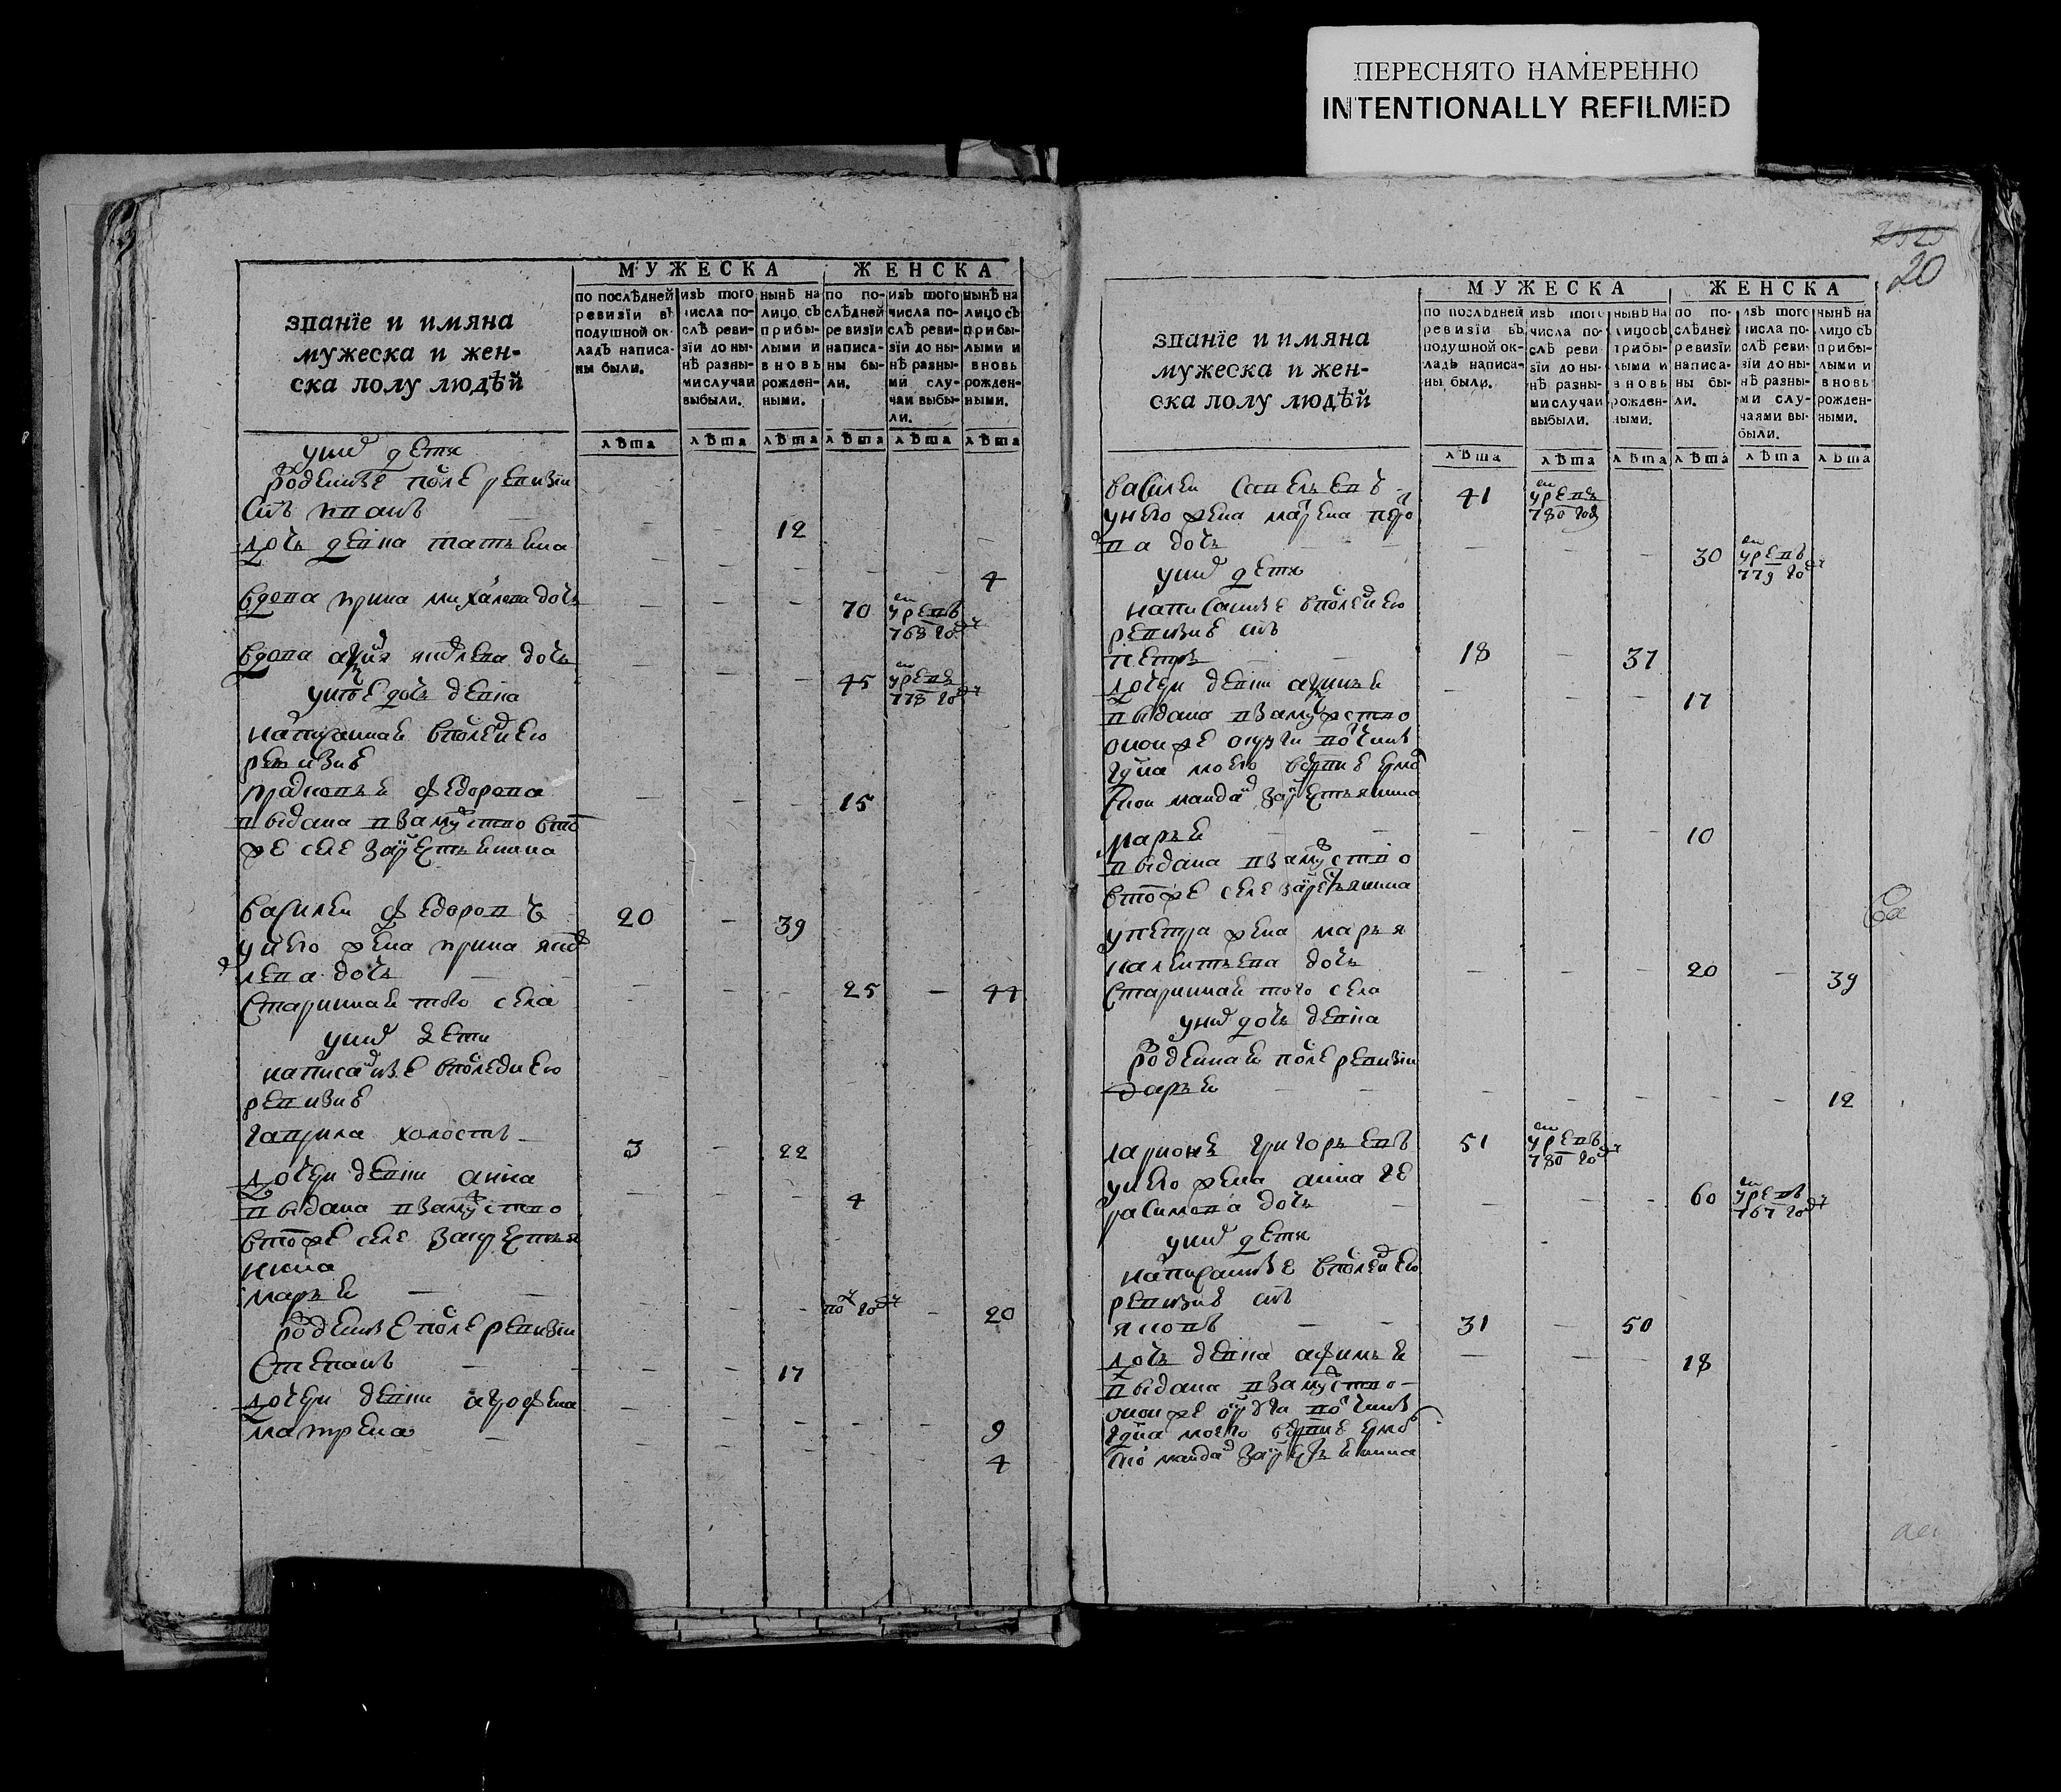 ПЕРЕСНЯТО НАМЕРЕННО
INTENTIONALLY REFILMED
20
МУЖЕСКА ЖЕНСКА
званїе и имяна
мужеска и жен-
ска полу людѣй
по послѣдней
ревизїи въ
подушной ок-
ладъ написа-
ны были.
изъ того
числа по-
слѣ реви-
зїи до ны-
нѣ разны-
ми случаи
выбыли.
нынѣ на
лицо съ
прибы-
лыми и
вновь
рожден-
ными.
по по-
слѣдней
ревизїи
написа-
ны бы-
ли.
изъ того
числа по-
слѣ реви-
зїи до ны-
нѣ разны-
ми слу-
чаи выбы-
ли.
нынѣ на
лицо съ
прибы-
лыми и
вновь
рожден-
ными.
лѣта лѣта лѣта лѣта лѣта лѣта
у них дети
рожденные после ревизии
Сынъ иванъ 12
дочь девка татьяна 4
вдова ирина михалева дочь 70 умре въ 768 году
вдова яковлева дочь 45 умре въ 778 году
у нее дочь девка
написанная в последнею
ревизию
федорова 15
выдана в замужство в том
же селе за крестьянина
василей федоровъ 20 - 39
у него жена ирина яков
лева дочь 25 - 44
Старинная того села
у них дети
написанные в последнею
ревизию
гаврила холостъ 3 - 22
дочери девки анна 4
выдана в замужство
в том же селе за крестья
нина
марья по году - 20
рожденные после ревизии
Степанъ 17
дочери девки агрофена 9
матрена 4
МУЖЕСКА ЖЕНСКА
званїе и имяна
мужеска и жен-
ска полу людѣй
по послѣдней
ревизїи въ
подушной ок-
ладъ написа-
ны были.
изъ того
числа по-
слѣ реви
зїи до ны-
нѣ разны-
ми случаи
выбыли.
нынѣ на
лицо съ
прибы-
лыми и
вновь
рожден-
ными.
по по-
слѣдней
ревизїи
написа-
ны бы-
ли.
изъ того
числа по-
слѣ реви-
зїи до ны-
нѣ разны-
ми слу-
чаями вы-
были.
нынѣ на
лицо съ
прибы-
лыми и
вновь
рожден-
ными.
лѣта лѣта лѣта лѣта лѣта лѣта
василей савельевъ 41 умре въ 780 году
у него жена
ва дочь 30 умре въ 779 году
у них дети
написанные в последнею
ревизию сынъ
петръ 18 - 37
дочери девки 17
выдана в замужство
оной же округи в вотчину
крестьянина
марья 10
выдана в замужство
в том же селе за крестьянина
у петра жена марья
дочь 20 - 39
Старинная того села
у них дочь девка
рожденная после ревизии
дарья 12
ларионъ григорьевъ 51 умре въ 780 году
у него жена анна ге
расимова дочь 60 умре въ 767 году
у них дети
написанные в последнею
ревизию сынъ
яковъ 31 - 50
дочь девка афимья 18
выдана в замужство
оной же округи в вотчину